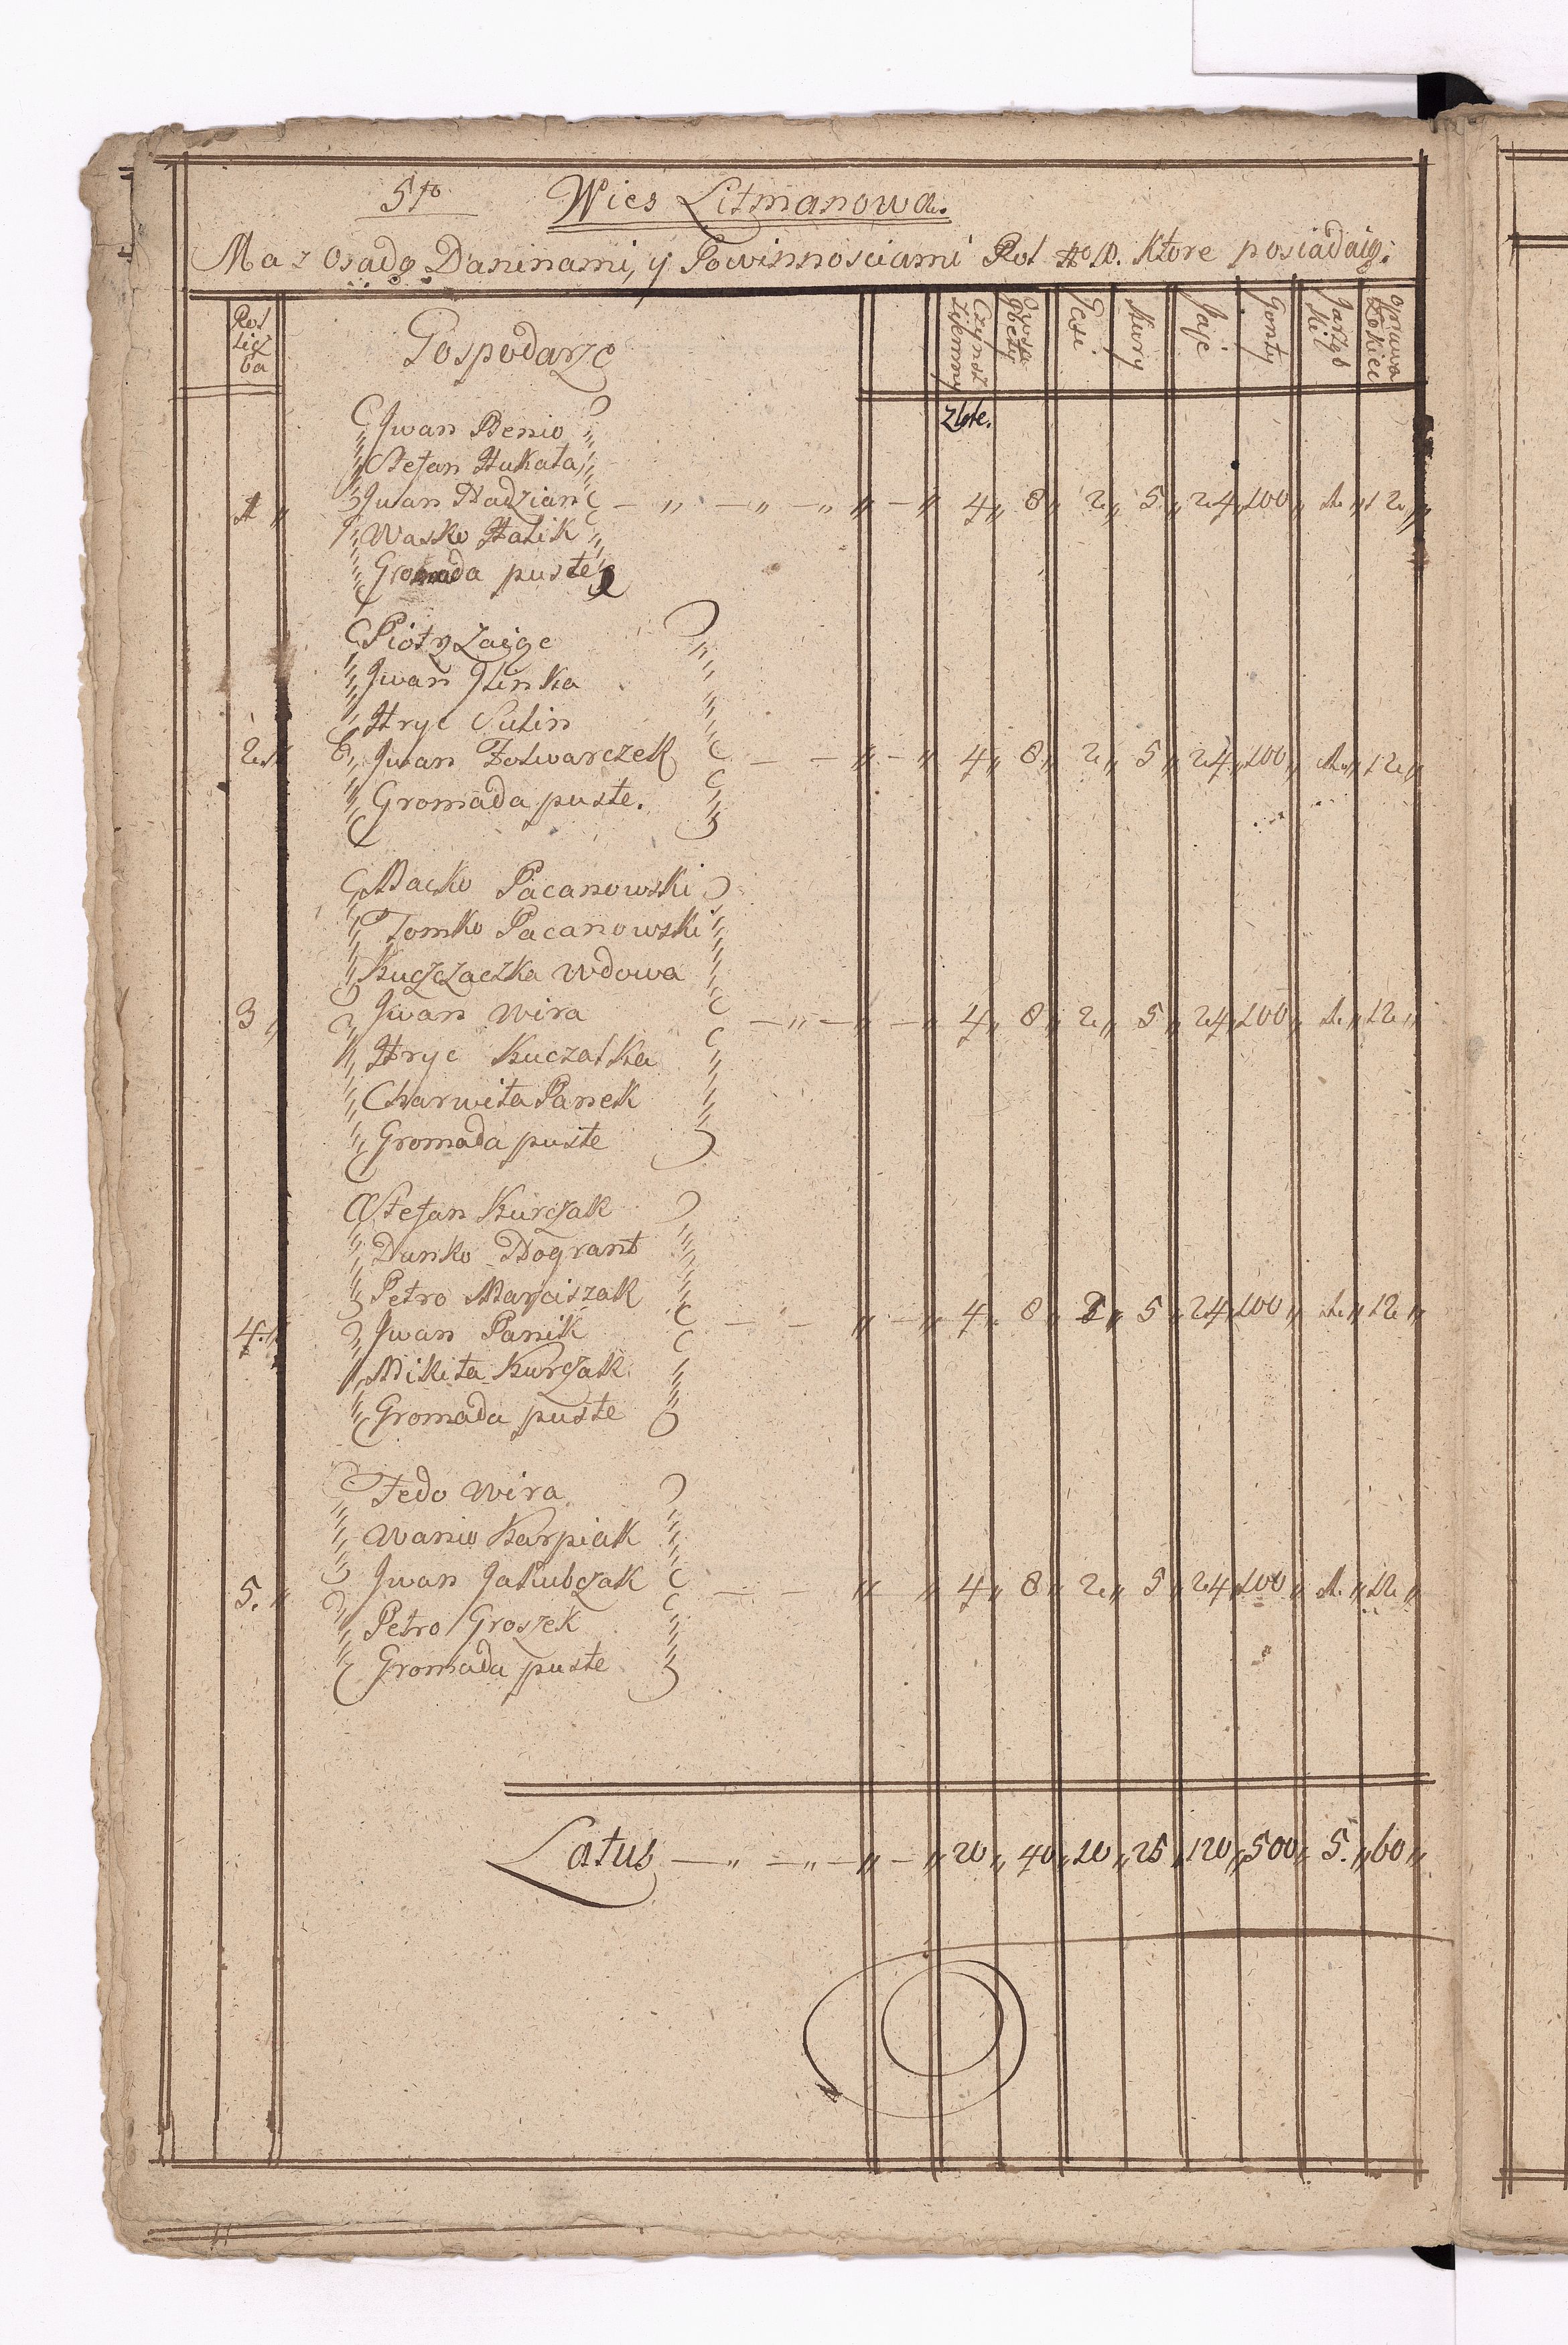 5to Wies Litmanowa.
Ma z Osadą Daninami, y Powinnosciami Rol No 10. Ktore posiadaią:
Rol liczba Gospodarze Czynsz ziemny Owsa Gęsi Kury Jaje Gonty Jarząbki oprawa Łokiec
złote.
Jwan Benio
Stefan Hukata
1 „ Jwan Hadzian — „ — „ — „ „ — „ 4 „ 8 „ 2 „ 5 „ 24 „ 100 „ 1 „ 12 „
Wasko Halik
Gromada puste
Piotr Zaiąc
Jwan Glinka
Hryc Sulin
2 „ Jwan Folwarczek — — „ — „ 4 „ 8 „ 2 „ 5 „ 24 „ 100 „ 1 „ 12 „
Gromada puste.
Macko Pacanowski
Tomko Pacanowski
Kuczczaczka wdowa
3 „ Jwan Wira — „ — „ — „ 4 „ 8 „ 2 „ 5 „ 24 „ 100 „ 1 „ 12 „
Hryc Kuczatka
Charwita Panek
Gromada puste
Stefan Kurczak
Danko Hogrant
Petro Marciszak
4. „ Jwan Panik — „ — „ — „ 4 „ 8 „ 2 „ 5 „ 24 „ 100 „ 1 „ 12 „
Mikita Kurczak
Gromada puste
Fedo Wira
Wanio Karpiak
5. „ Jwan Jakubczak — — „ — „ 4 „ 8 „ 2 „ 5 „ 24 „ 100 „ 1 „ 12 „
Petro Groszek
Gromada puste
Latus — „ — „ — „ — „ 20 „ 40 „ 10 „ 25 „ 120 „ 500 „ 5. „ 60 „